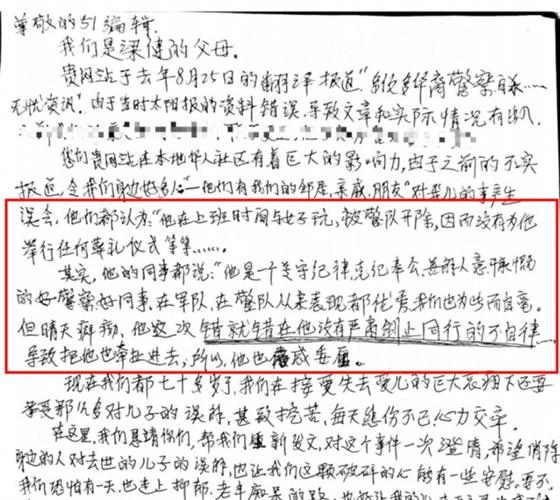 尊敬的51编辑
我们是梁健的父母.
贵网站于去年8月25日的翻译报道“多伦多华裔警察自杀…
无忧资讯”.由于当时太阳报的资料错误,导致文章和实际情况有出入.
您们贵网站在本地华人社区有着巨大的影响力,由于之前的不实
报道,令我们身边好多人“一他们有我们的邻居,亲戚,朋友”对我儿的事产生
误会,他们都认为:“他在上班时间与女子玩,被警队开除,因而没有为他
举行任何葬礼仪式等等……
其实,他的同事都说:“他是一个守纪律,克己奉公,善解人意
的好警察好同事,在军队,在警队从来表现都优秀,我们也为此而自豪.
但晴天霹雳,他这次错就错在他没有严肃制止同行的不自律…
导致把他也牵扯进去,所以,他也感委屈。
现在我们都七十多岁了,我们在接受失去爱儿的巨大哀痛下还要
承受那么多对儿子的误解,甚致挖苦,每天悲伤不已心力交瘁.
在这里,我们恳请你们,帮我们重新发文,对这个事件一次澄清,希望消除
身边的人对去世的儿子的误解,也让我们这颗破碎的心能有一些安慰.要不,
我们恐怕有一天,也走上抑郁,老年痴呆的路